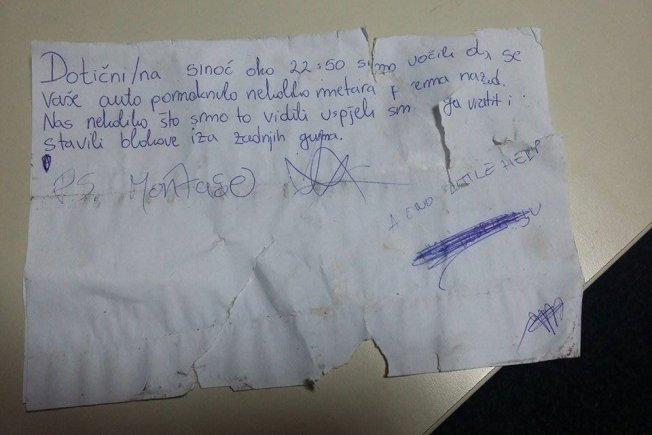 Dotični/na sinoć oko 22:50 smo uočili da se
Vaše auto pomaknulo nekoliko metara prema nazad.
Nas nekoliko što smo to vidili uspjeli smo ga vratit i
stavili blokove iza zadnjih guma.
P.S. Montago
LITTLE HELP